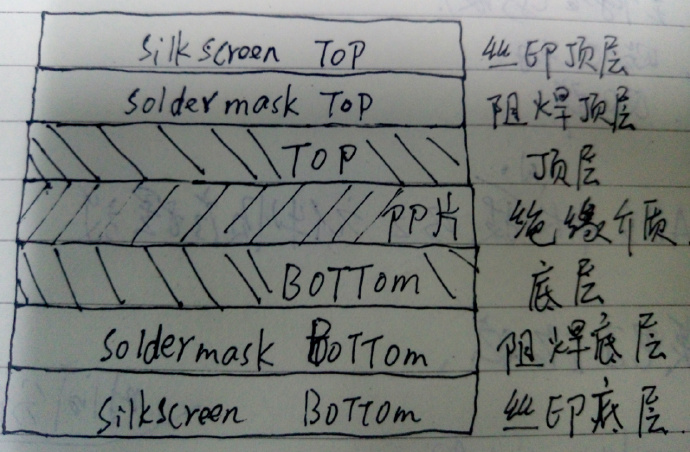 silkscreen TOP 丝印顶层
soldermask TOP 阻焊顶层
TOP 顶层
PP片 绝缘介质
BOTTOM 底层
soldermask BOTTOM 阻焊底层
silkscreen BOTTOM 丝印底层